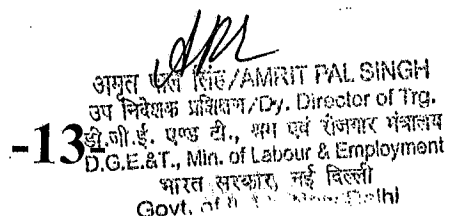 अमृत पाल सिंह/AMRIT PAL SINGH
उप निदेशक प्रशिक्षण/Dy. Director of Trg.
-13-
डी.जी.ई. एण्ड टी., श्रम एवं रोजगार मंत्रालय
D.G.E.&T., Min. of Labour & Employment
भारत सरकार, नई दिल्ली
Govt. of New Delhi